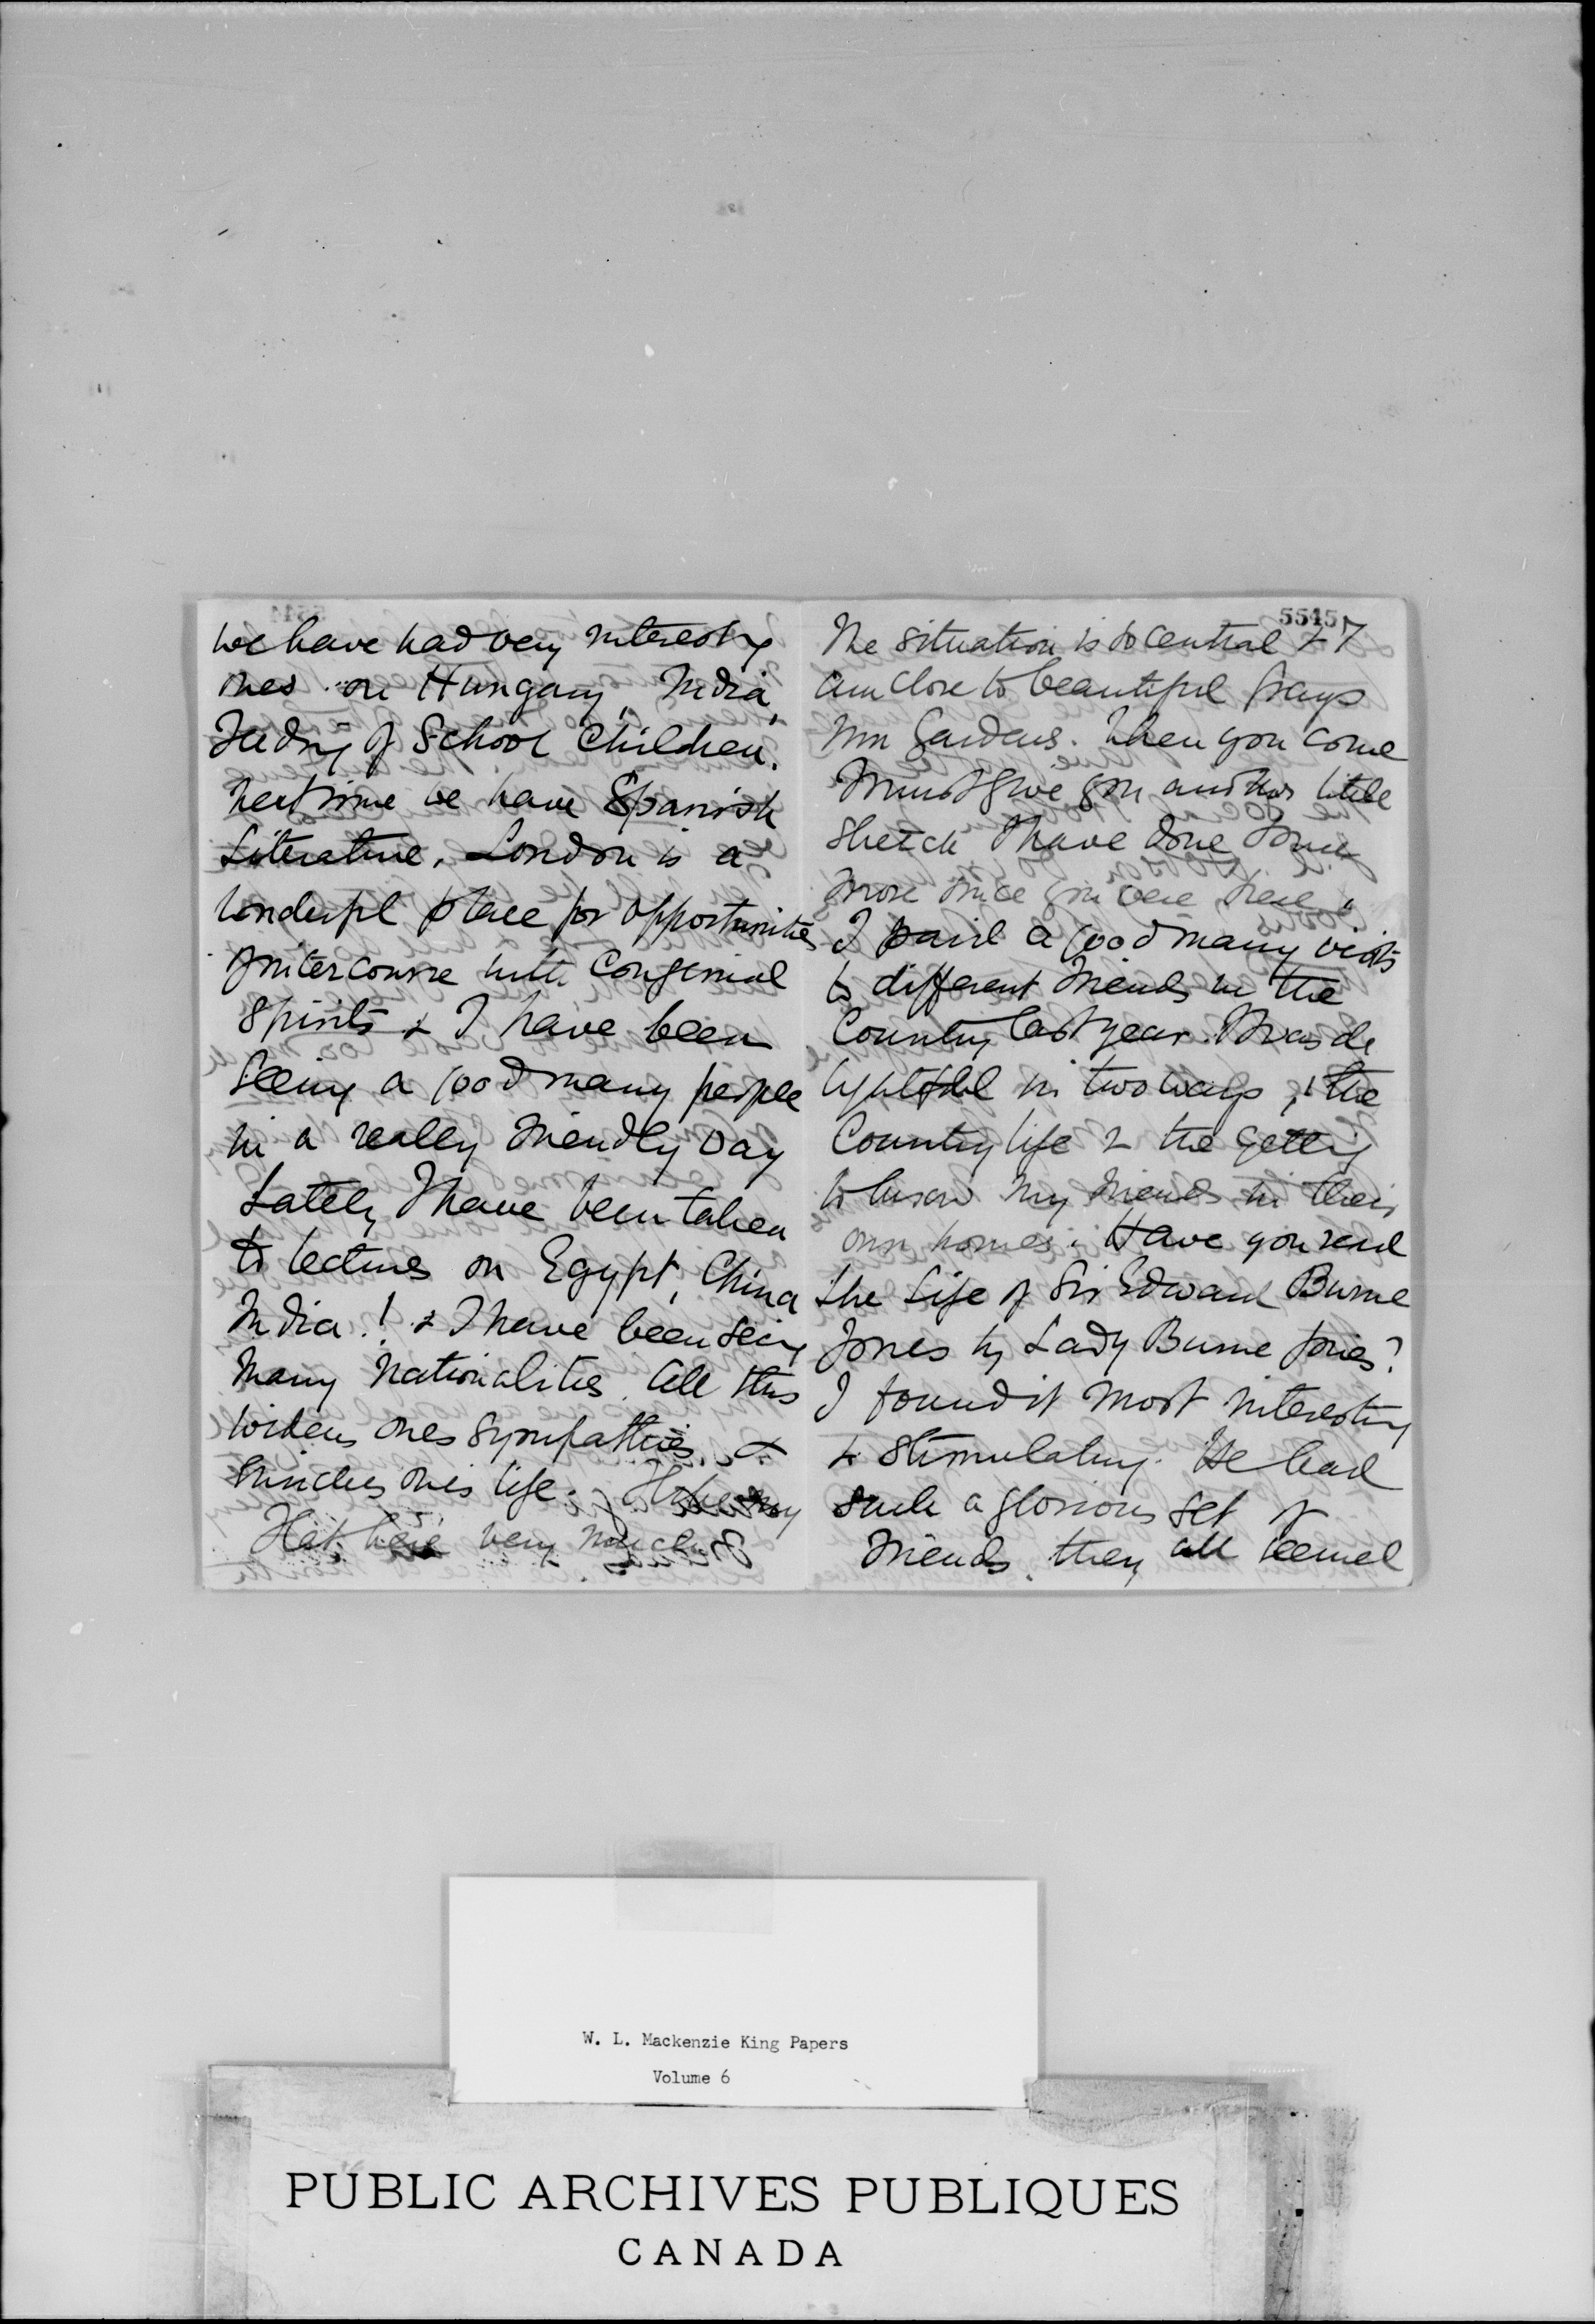 we have had very interesting
ones on Hungary, India,
Feeding of School Children.
Next time we have Spanish
Literature. London is a
wonderful place for opportunities
of intercourse with congenial
spirits & I have been
seeing a good many people
in a really friendly way
Lately I have been taken
to lectures on Egypt, China
India! & I have been seeing
many nationalities. All this
widens ones sympathies &
enriches ones life. I like my
Flat here very much
55457
The situation is so central & I
am close to beautiful Grays
Inn Gardens. When you come
I must give you another little
sketch I have done some
more since you were here.
I paid a good many visits
to different friends in the
Country last year. It was de
lightful in two ways, the
Country life & the getting
to know my friends in their
own homes. Have you read
the Life of Sir Edward Burne
Jones by Lady Burne Jones?
I found it most interesting
& stimulating. He had
such a glorious set of
friends. they all seemed
W. L. Mackenzie King Papers
Volume 6
PUBLIC ARCHIVES PUBLIQUES
CANADA